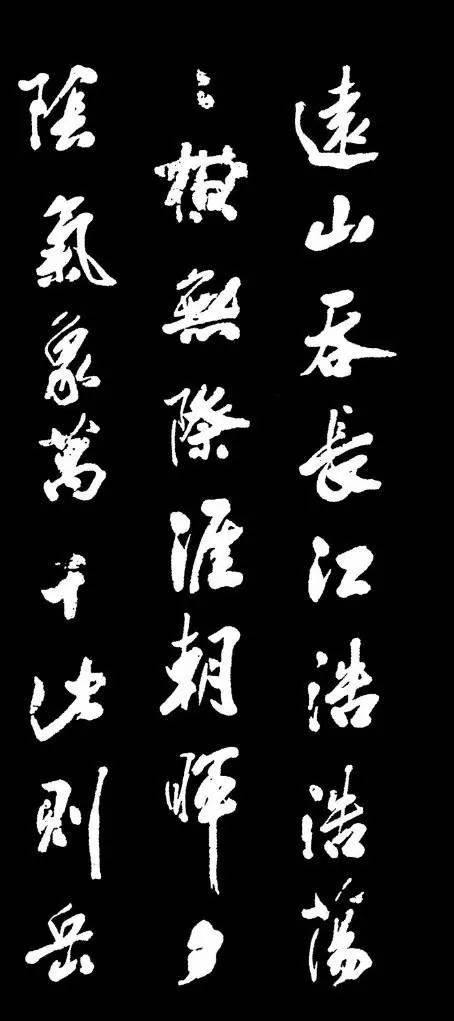 遠山吞長江浩浩蕩
〻橫無際涯朝暉夕
陰氣象萬千此則岳